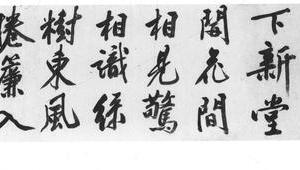 下新堂
閒花間
相見驚
相識綠
樹東風
捲簾入